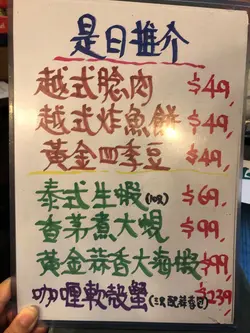 是日推介
越式腍肉 $49,
越式炸魚餅 $49,
黃金四季豆 $49,
泰式生蝦 $69,
香茅煮大蜆 $99,
黃金蒜香大海蝦 $99,
咖喱軟殼蟹 $239